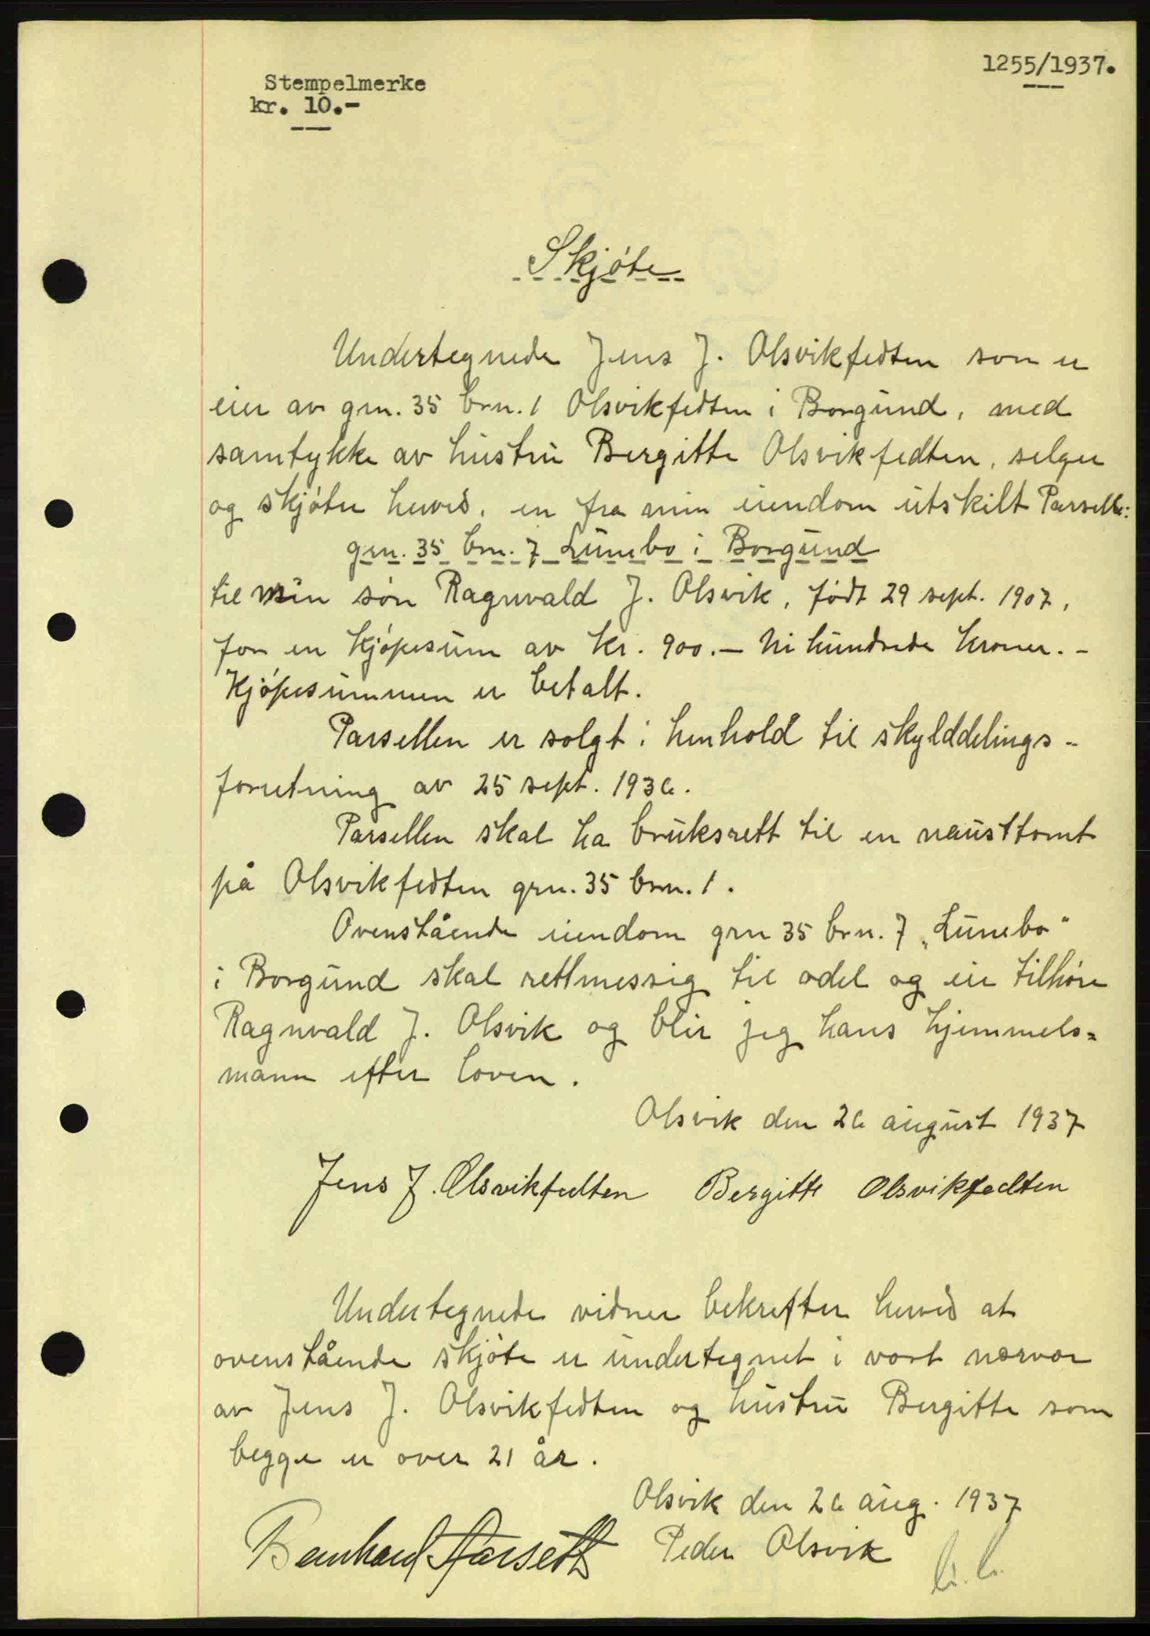 1255/1937.
Stempelmerke
kr. 10.-
Skjøte
Undertegnede Jens J. Olsvikfedten som er
eier av grn. 35 brn. 1 Olsvikfedten i Borgund, med
samtykke av hustru Bergitte Olsvikfedten, selger
og skjøter herved, en fra min eiendom utskilt Parselle:
grn. 35 brn. 7 Lunebo i Borgund
til min søn Ragnvald J. Olsvik, født 29 sept. 1907,
for en kjøpesum av kr. 900.— Ni hundrede kroner. -
Kjøpesummen er betalt.
Parsellen er solgt i henhold til skylddelings-
forretning av 25 sept. 1936.
Parsellen skal ha bruksrett til en nausttomt
på Olsvikfedten grn. 35 brn. 1.
Ovenstående eiendom grn 35 brn. 7 „Lunebo"
i Borgund skal rettmessig til odel og eie tilhøre
Ragnvald J. Olsvik og blir jeg hans hjemmels=
mann efter loven.
Olsvik den 26 august 1937
Jens J. Olsvikfedten Bergitte Olsvikfedten
Undertegnede vidner bekrefter herved at
ovenstående skjøte er undertegnet i vort nærvær
av Jens J. Olsvikfedten og hustru Bergitte som
begge er over 21 år.
Olsvik den 26 aug. 1937
Bernhard Aarseth Peder Olsvik